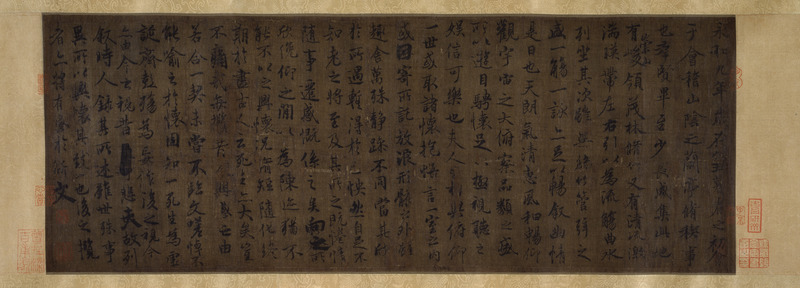 永和九年歲在癸丑暮春之初
于會稽山陰之蘭亭脩稧事
也羣賢畢至少長咸集此地
有崇山峻領茂林脩竹又有清流激
湍暎帶左右引以為流觴曲水
列坐其次雖無絲竹管弦之
盛一觴一詠亦足以暢敘幽情
是日也天朗氣清惠風和暢仰
觀宇宙之大俯察品類之盛
所以遊目騁懷足以極視聽之
娛信可樂也夫人之相與俯仰
一世或取諸懷抱悟言一室之內
或因寄所託放浪形骸之外雖
趣舍萬殊靜躁不同當其欣
於所遇蹔得於己怏然自足不
知老之將至及其所之既惓情
隨事遷感慨係之矣向之所
欣俛仰之間以為陳迹猶不
能不以之興懷況脩短隨化終
期於盡古人云死生亦大矣豈
不痛哉每攬昔人興感之由
若合一契未嘗不臨文嗟悼不
能喻之於懷固知一死生為虛
誕齊彭殤為妄作後之視今
亦由今之視昔悲夫故列
敘時人錄其所述雖世殊事
異所以興懷其致一也後之攬
者亦將有感於斯文